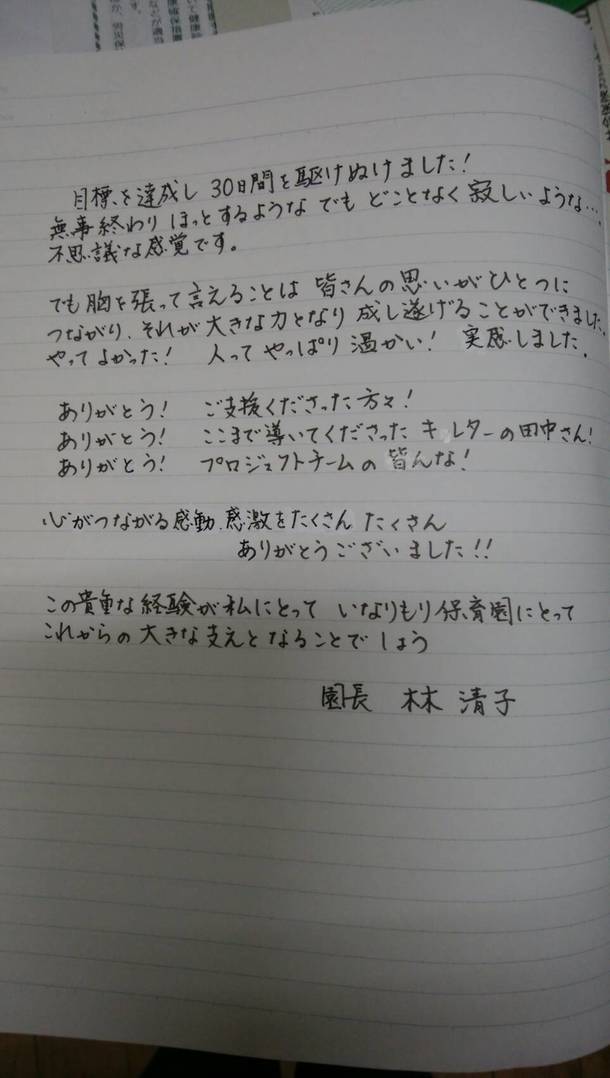 目標を達成し 30日間を駆けぬけました!
無事終わり ほっとするような でも どことなく 寂しいような…
不思議な感覚です。
でも 胸を張って言えることは 皆さんの思いがひとつに
つながり、それが大きな力となり 成し遂げることができました。
やってよかった! 人って やっぱり 温かい! 実感しました。
ありがとう! ご支援くださった方々!
ありがとう! ここまで導いてくださった キュレターの田中さん!
ありがとう! プロジェクトチームの皆んな!
心がつながる感動、感激をたくさん たくさん
ありがとうございました!!
この貴重な経験が私にとって いなりもり保育園にとって
これからの大きな支えとなることでしょう
園長 林 清子